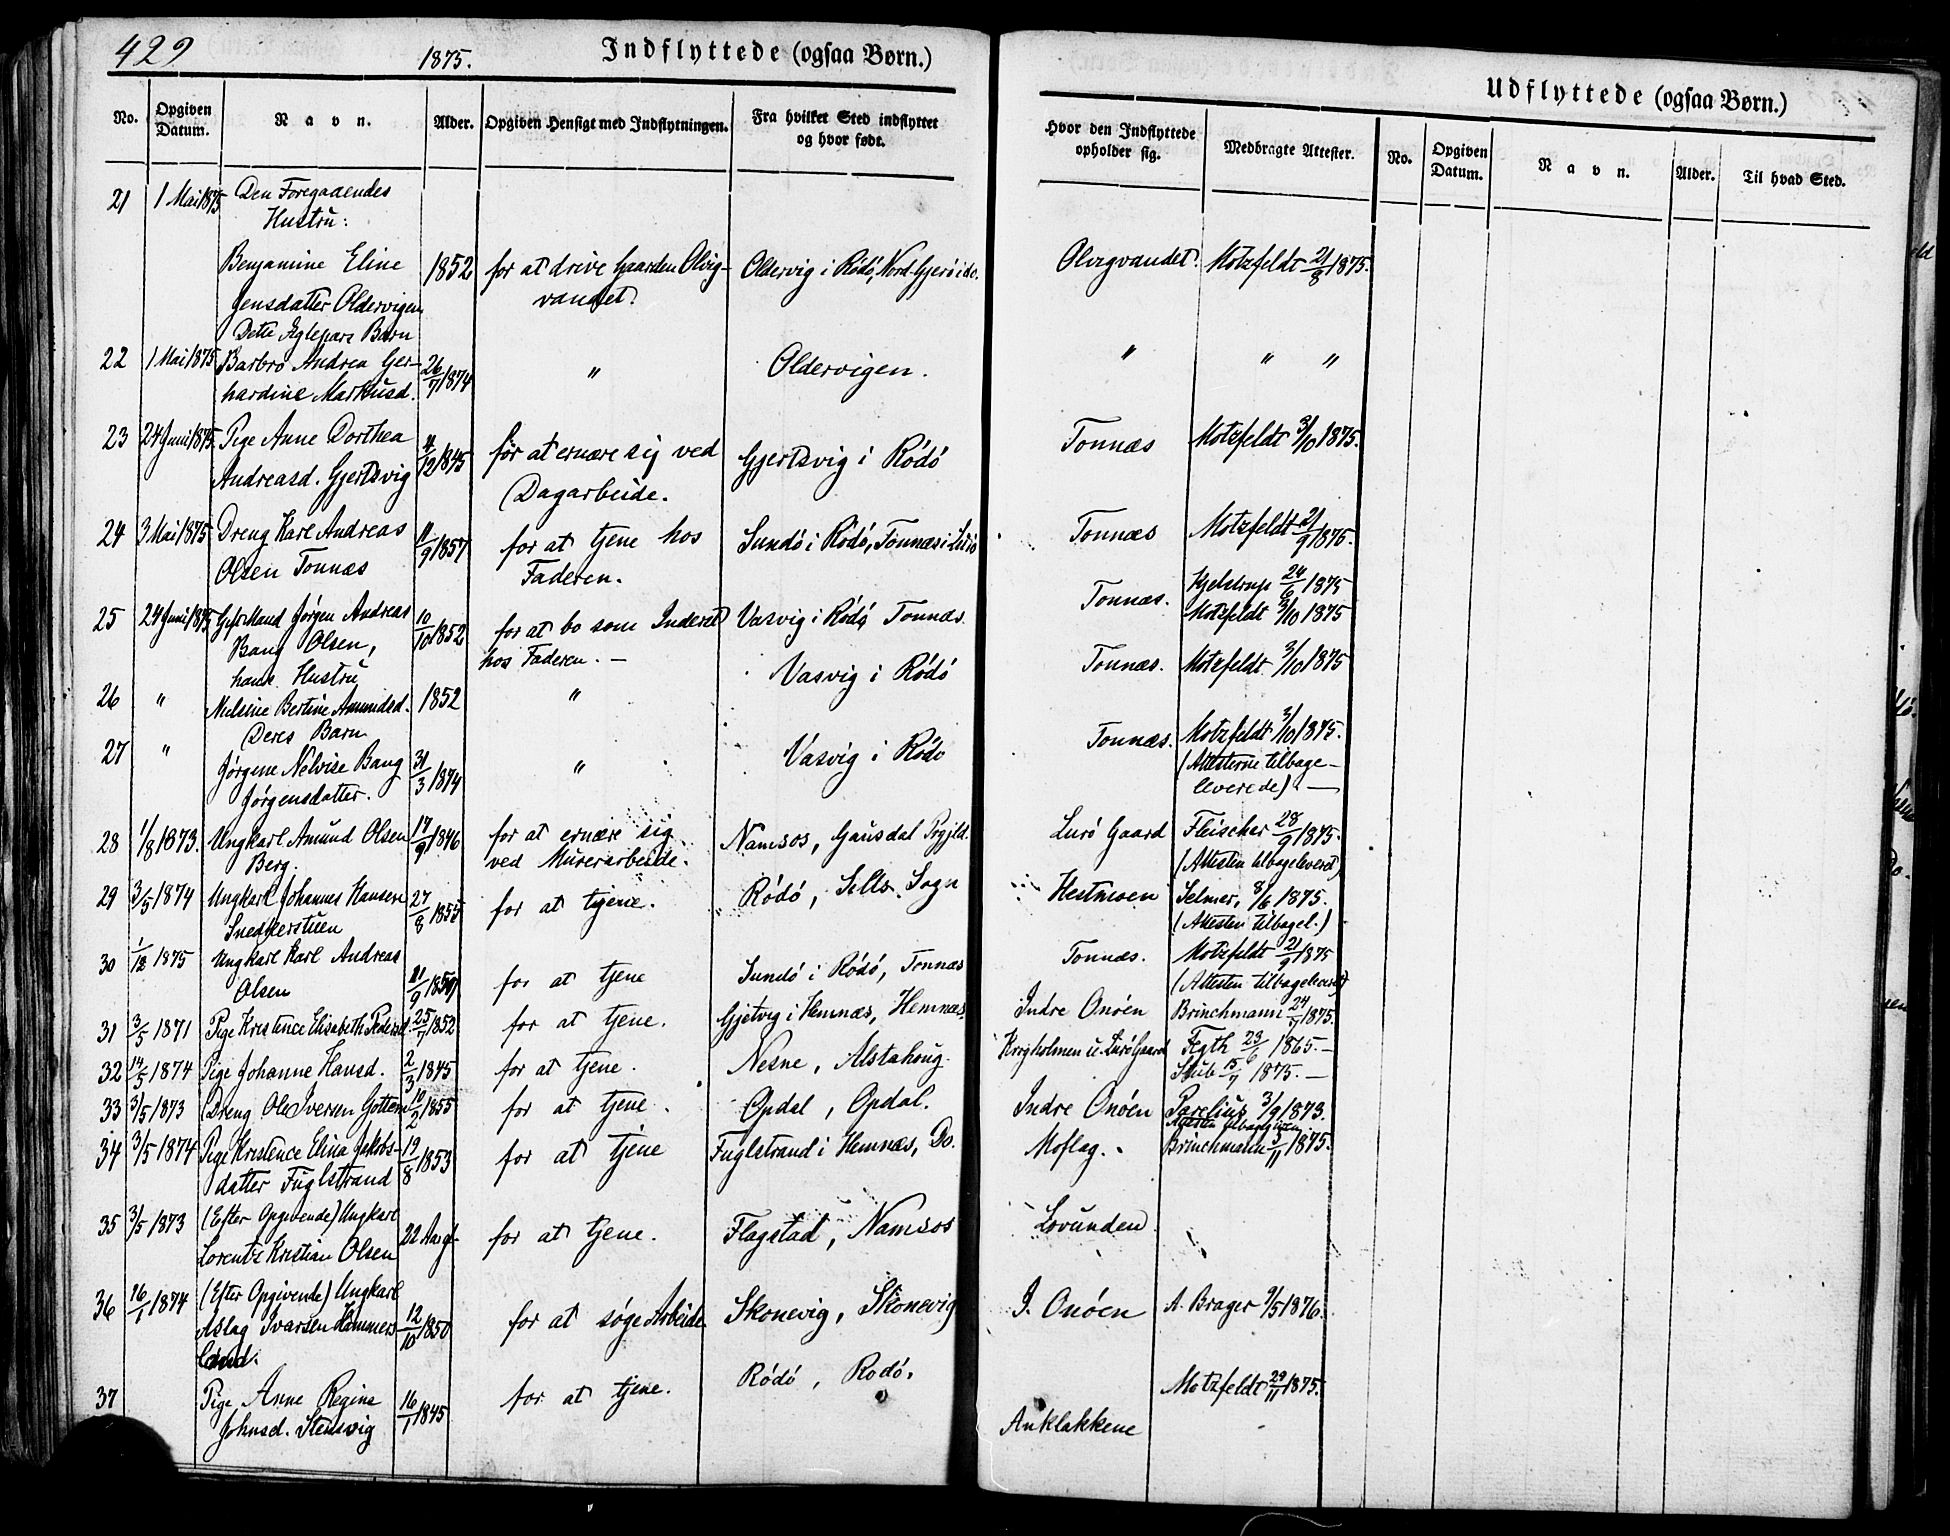 429
1875.
Indflyttede (ogsaa Børn.)
No.
Opgiven Datum.
Navn.
Alder.
Opgiven Hensigt med Indflytningen.
Fra hvilket Sted indflyttet og hvor født.
Hvor den Indflyttede opholder sig.
Medbragte Attester.
Udflyttede (ogsaa Børn.)
No.
Opgiven Datum.
Navn.
Alder.
Til hvad Sted.
21 1 Mai 1875 Den Foregaaendes
Hustru:
Benjamine Eline 1852 for at drive Gaarden Olvig- Oldervig i Rödö, Nord-Gjerö i do. Olvigvandet. Motzfeldt 21/8 1875.
Jensdatter Oldervigen vandet.
Dette Ægtepars Barn
22 1 Mai 1875 Barbro Andrea Ger- 26/7 1874 " Oldervigen. " " "
hardine Markusd.
23 24 Juni 1875 Pige Anne Dorthea 4/12 1845 for at ernære sig ved Gjertsvig i Rödö Tonnæs Motzfeldt 3/10 1875.
Andreasd. Gjertsvig Dagarbeide.
24 3 Mai 1875 Dreng Karl Andreas 11/9 1857 for at tjene hos Sundö i Rödö, Tonnæs i Lurö Tonnæs Motzfeldt 21/9 1875.
Olsen Tonnæs Faderen.
25 24 Juni 1875 Gift Mand Jörgen Andreas 10/10 1852 for at bo som Inderst Vasvig i Rödö, Tonnæs. Tonnæs. Hjelstrup 24/6 1875
Bang Olsen, hos Faderen. — Motzfeldt 3/10 1875
hans Hustru
26 " Nielsine Bertine Amundsd. 1852 " Vasvig i Rödö Tonnæs. Motzfeldt 3/10 1875
Deres Barn
27 " Jörgene Nelvise Bang 31/3 1874 " Vasvig i Rödö Tonnæs. Motzfeldt 3/10 1875.
Jörgensdatter. (Attesterne tilbage-
leverede). —
28 1/8 1873. Ungkarl Amund Olsen 17/9 1846 for at ernære sig Namsos, Gausdal Prgjld. Lurö Gaard Fleischer 28/9 1875.
Berg. ved Murerarbeide. (Attesten tilbageleveret)
29 3/5 1874 Ungkarl Johannes Hansen 27/8 1855 for at tjene. Rödö, Sells Sogn Hestmoen Selmer, 8/6 1875.
Snedkerstuen (Attesten tilbagel.)
30 1/12 1875 Ungkarl Karl Andreas 11/9 1857 for at tjene Sundö i Rödö, Tonnæs Tonnæs. Motzfeldt 21/9 1875
Olsen (Attesten tilbageleveret)
31 3/5 1871 Pige Kristence Elisabeth Pedersd. 25/7 1852 for at tjene. Gjetvig i Hemnæs, Hemnæs. Indre Onöen Brinchmann 24/7 1875.
32 14/5 1874 Pige Johanne Hansd. 2/3 1845 for at tjene. Nesne, Alstahoug. Krogholmen u. Lurö Gaard Fegth 23/6 1865. —
Stub 15/7 1875. —
33 3/5 1873 Dreng Ole Iversen Gottem 10/2 1855 for at tjene. Opdal, Opdal. Indre Onöen Parelius 3/9 1873.
Attesten tilbagegiven
34 3/5 1874 Pige Kristence Elina Jakobs- 19/8 1853 for at tjene Fuglstrand i Hemnæs, Do. Moflag. Brinchmann 5/11 1875.
datter Fuglstrand
35 3/5 1873 (Efter Opgivende) Ungkarl 22 Aar gl. for at tjene. Flagstad, Namsos Lovunden.
Lorents Kristian Olsen
36 16/1 1874 (Efter Opgivende) Ungkarl 12/10 1850 for at söge Arbeide. Skonevig, Skonevig I. Onöen A. Brager 9/5 1876.
Aslag Ivarsen Hammers-
land.
37 Pige Anne Regine 16/1 1845 for at tjene. Rödö, Rodö. Anklakkene Motzfeldt 29/11 1875.
Johnsd. Stensvig